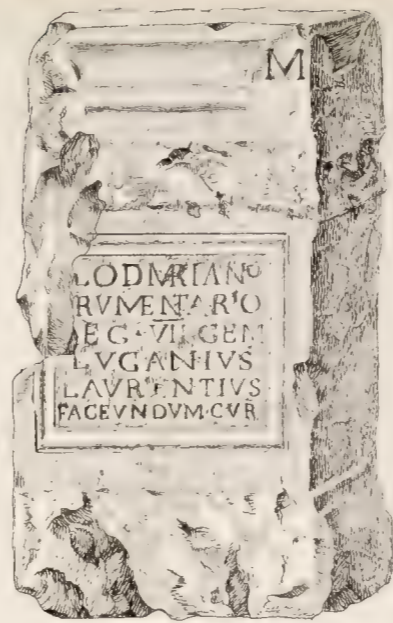 M
LODMARTIANO
RVMENTARIO
EG·VII·GEM
LVGANIVS
LAVRENTIVS
FACEVNDVM·CVR